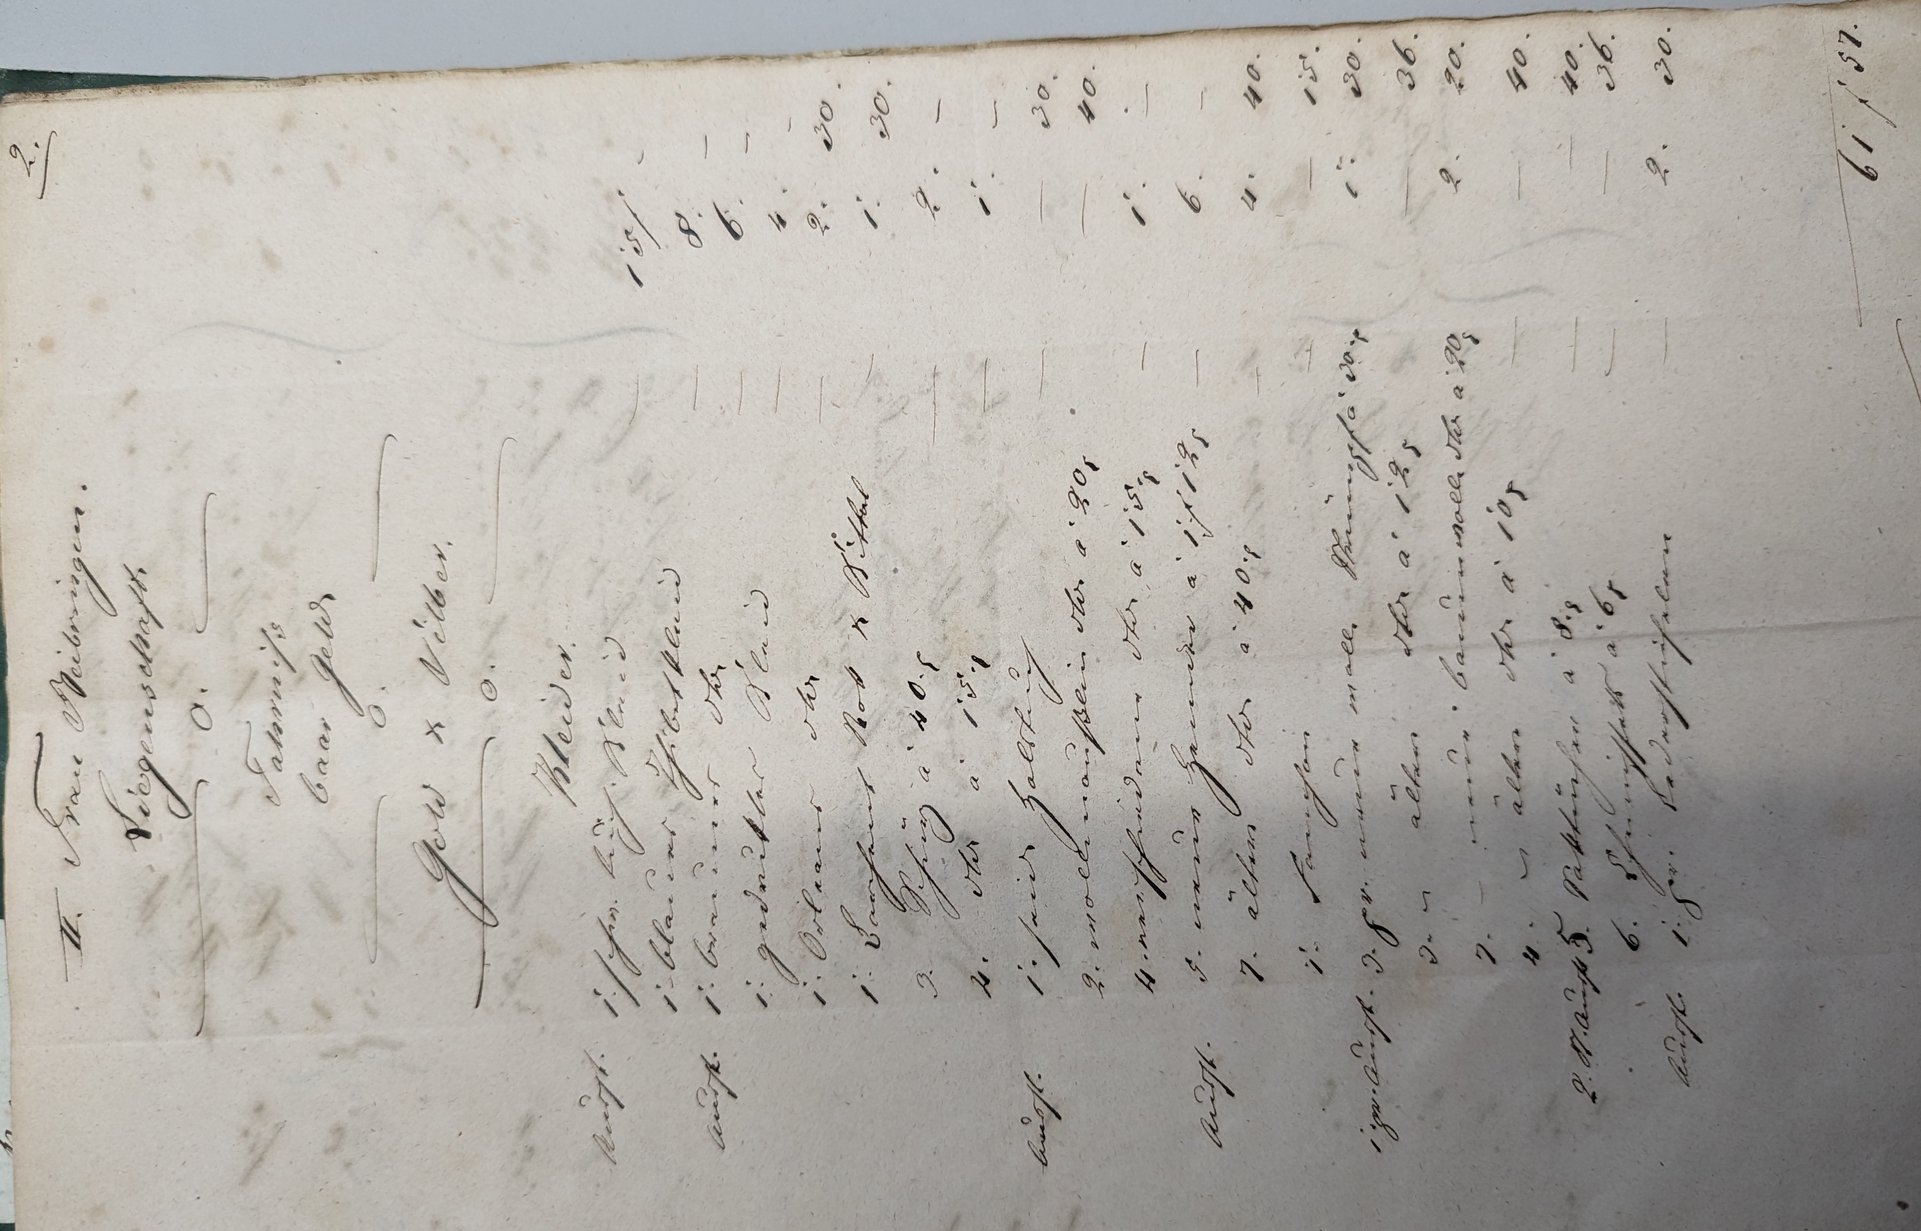 2.
II. Frau Beibringen.
Liegenschaft.
0.
Fahrniß
baar Geld
0.
Gold & Silber.
0.
Kleider.
Ausst. 1. schw. tuch. Kleid — 15 f —
1. blaues Thibetkleid — 8. —
Ausst. 1. braunes dto — 6. —
1. gedrucktes Kleid — 4. —
1. Orleans dto — 2. 30.
1. Rock & Kittel — 1. 30.
3. Schürz à 40. x — 2. —
4. dto à 15. x — 1. —
Ausst. 1. seid. Halstuch — — 30.
2. dto à 20 x — 40.
4. verschiedene dto à 15. x — 1. —
Ausst. 5. neue Hemder à 1 f 12 x — 6. —
7. ältere dto à 40. x — 4. 40.
1. — — 15.
1 pr. Ausst. 3. pr. neue woll. Strümpf à 30. x 1. 30.
3. " ältere dto à 12 x — 36.
7. " neue baumwoll. dto à 20 x 2. 20.
4. " ältere dto à 10 x — — 40.
2. St. Ausst. 5. à 8. x — — 40.
6. à 6 x — — 36.
Ausst. 1. pr. — 2. 30.
61 f 57.